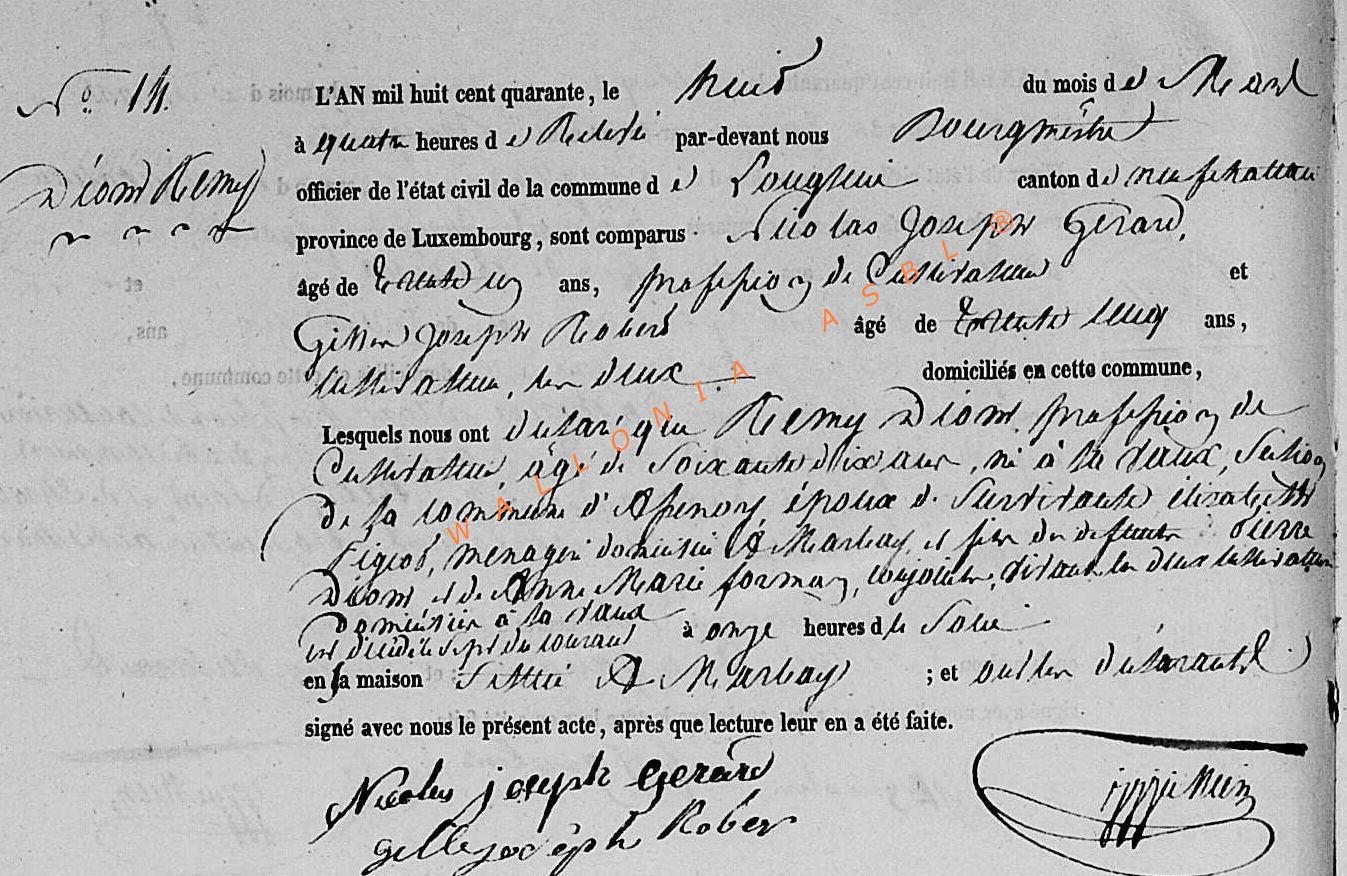 N.° 14.
Dion Remy
L'AN mil huit cent quarante, le huit du mois de Mars
à quatre heures de Relevé par-devant nous Bourgmestre
officier de l'état civil de la commune de Longlier canton de neufchateau
province de Luxembourg, sont comparus Nicolas Joseph Gerard,
âgé de trente ans, profession de Cultivateur et
Gilles Joseph Robert âgé de trente cinq ans,
cultivateur, les deux domiciliés en cette commune,
Lesquels nous ont déclaré que Remy Dion, profession de
Cultivateur, âgé de Soixante dix ans, né à la vaux, Section
de la commune d'Assenois époux de Survivante élisabeth
ménagère domicilié à Marbay, et fils des defunts Pierre
Dion et de Anne Marie conjoints, vivant les deux cultivateurs
Domiciliés à la vaux
est décédé le sept du courant à onze heures du Soir
en sa maison Située à Marbay ; et ont les déclarants
signé avec nous le présent acte, après que lecture leur en a été faite.
Nicolas joseph Gerard
gilles joseph Rober
WALLONIA ASBL ®